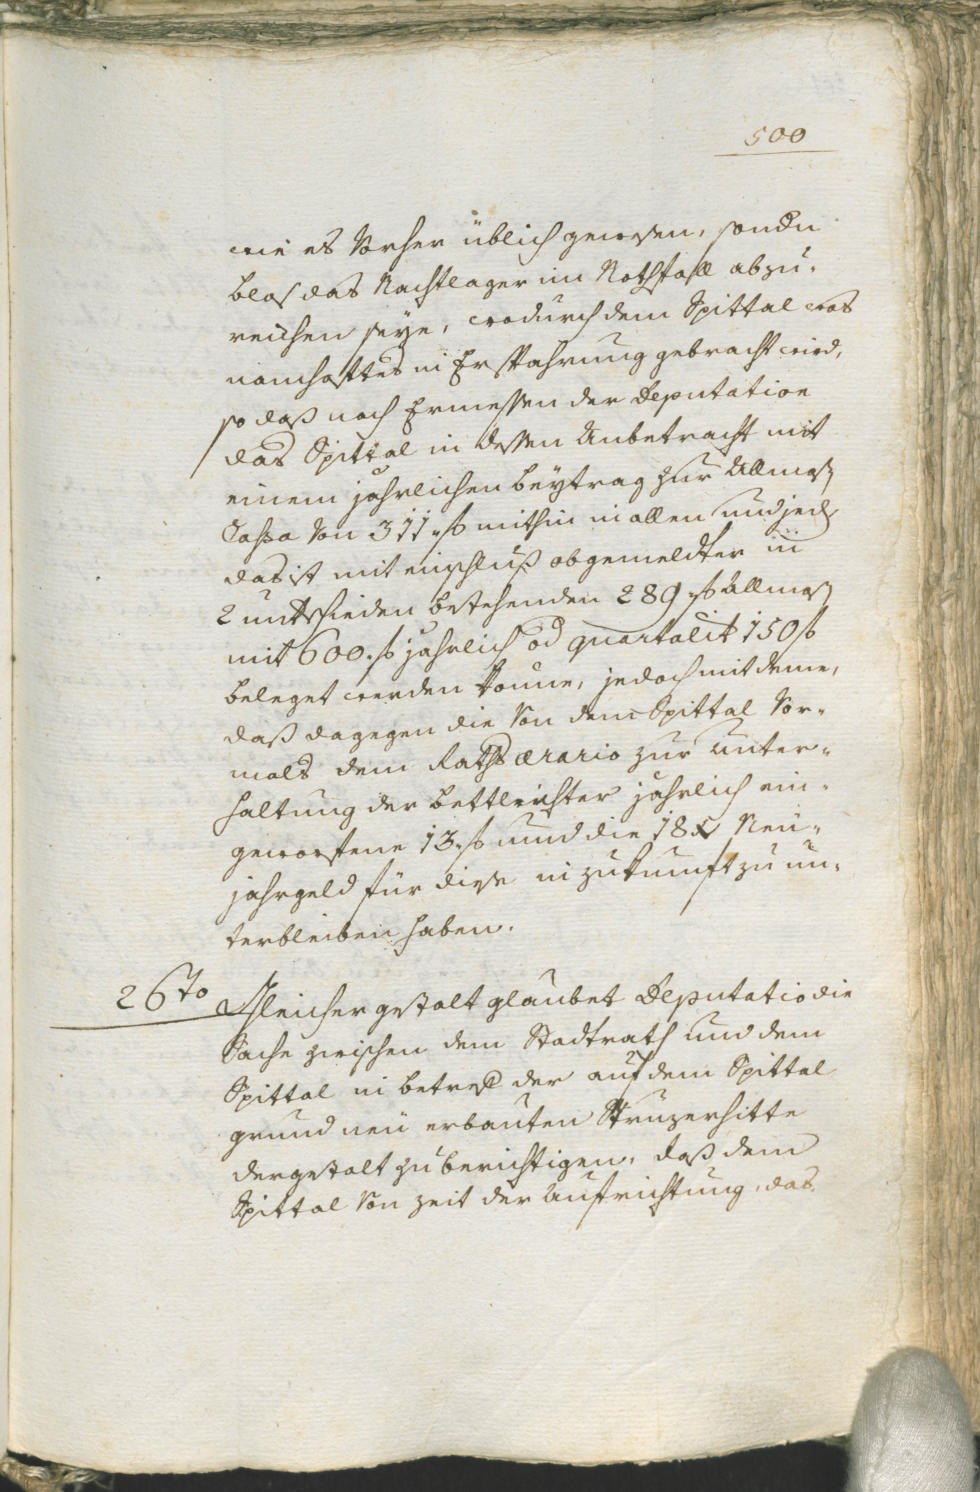 500
wie es Vorher üblich gewesen, sondn
blos das Nachtlager im Nothfall abzu-
reichen seye, wodurch dem Spittal was
namhaftes in Ersparung gebracht wird,
so daß nach Ermessen der Deputation
das Spittal in dessen Anbetracht mit
einem jahrlichen beÿtrag zur Allmoß
Cassa Von 311 f mithin in allen und jed
das ist mit einschluß obgemeldter in
2 untschieden bestehenden 289 f Allmoß
mit 600 f jahrlich od quartalit 150 f
beleget werden könne, jedoch mit deme,
daß dagegen die Von dem Spittal Vor-
mals dem Raths ærario zur Unter-
haltung der bettlrichter jährlich ein-
geworfene 13 f und die 18 x Neu-
jahrgeld für diese in zukunft zu un-
terbleiben haben.
26to Gleicher gestalt glaubet Deputatio die
Sache zwischen dem Stadtrath und dem
Spittal in betref der auf dem Spittal
grund neü erbauten Strazerhitte
dergestalt zu berichtigen, daß dem
Spittal Von zeit der Aufrichtung, das